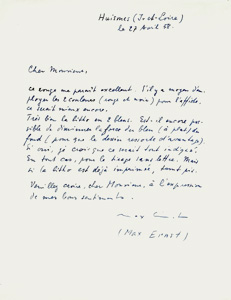 Huismes (I.-et-Loire)
le 27 Août 68.
Cher Monsieur,
ce rouge me paraît excellent. S'il y a moyen d'em-
ployer les 2 couleurs (rouge et noir) pour l'affiche,
ce serait mieux encore.
Très bon la litho en 2 bleus. Est-il encore pos-
sible de diminuer la force du bleu (à plat) du
fond (pour que le dessin ressorte davantage).
Si oui, je crois que ce serait tout indiqué.
En tout cas, pour le tirage sans lettre. Mais
si la litho est déjà imprimée, tant pis.
Veuillez croire, cher Monsieur, à l'expression
de mes bons sentiments.
(Max Ernst)